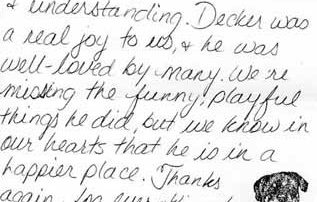 & understanding. Decker was
a real joy to us, & he was
well-loved by many. We're
missing the funny, playful
things he did, but we know in
our hearts that he is in a
happier place. Thanks
again for everything